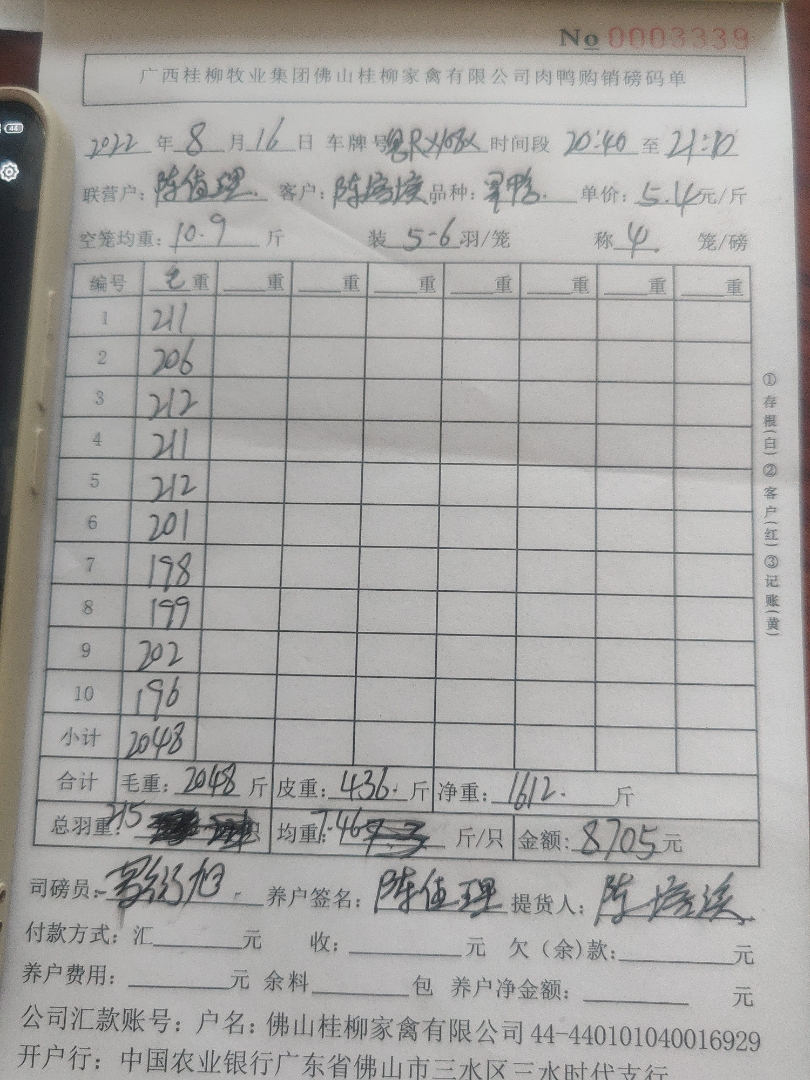 44
No 0003339
广西桂柳牧业集团佛山桂柳家禽有限公司肉鸭购销磅码单
2022年8月16日 车牌号 时间段20:40至21:10
联营户:陈值理. 客户:陈 品种: 鸭. 单价:5.4元/斤
空笼均重:10.9斤 装5-6羽/笼 称4.笼/磅
编号 毛重 重 重 重 重 重 重 重
1 211
2 206
3 212
4 211
5 212
6 201
7 198
8 199
9 202
10 196
小计 2048
合计 毛重:2048斤 皮重:436.斤 净重:1612.斤
总羽重:215 只 均重:7.46 斤/只 金额:8705元
司磅员: 养户签名:陈值理 提货人:陈
付款方式:汇 元 收: 元 欠(余)款: 元
养户费用: 元 余料 包 养户净金额: 元
公司汇款账号:户名:佛山桂柳家禽有限公司44-440101040016929
开户行:中国农业银行广东省佛山市三水区三水时代支行
①存根(白)②客户(红)③记账(黄)